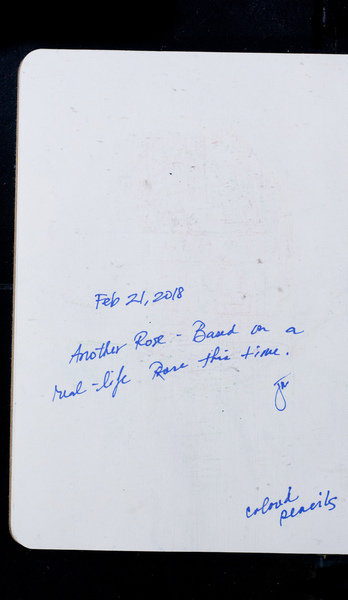 Feb 21, 2018
Another Rose - Based on a
real-life Rose this time.
JN
colored
pencils